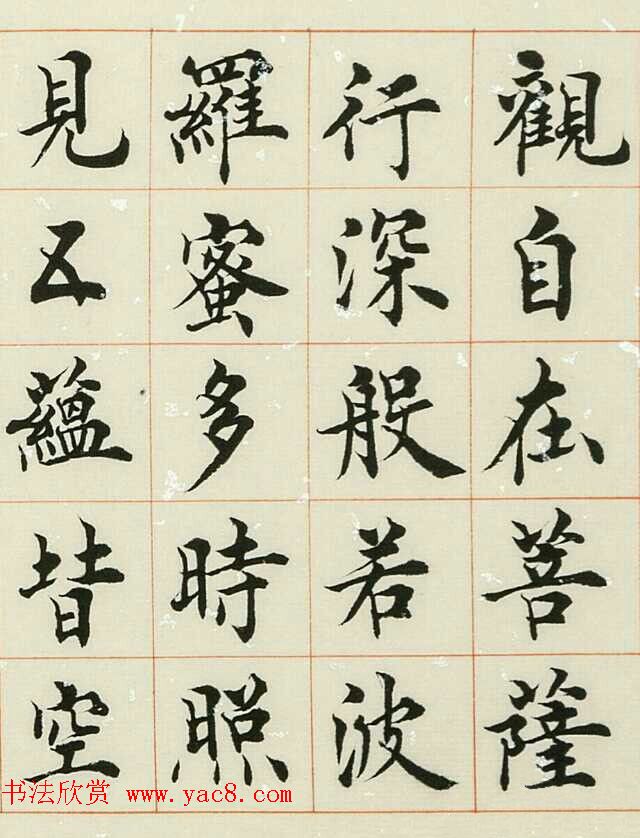 觀自在菩薩
行深般若波
羅蜜多時照
見五蘊皆空
书法欣赏 www.yac8.com